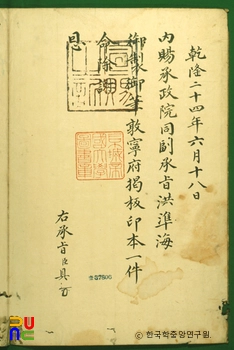 乾隆二十四年六月十八日
內賜承政院同副承旨洪準海
御製御筆敦寧府揭板印本一件
命除謝
恩
右承旨臣具
한국학중앙연구원